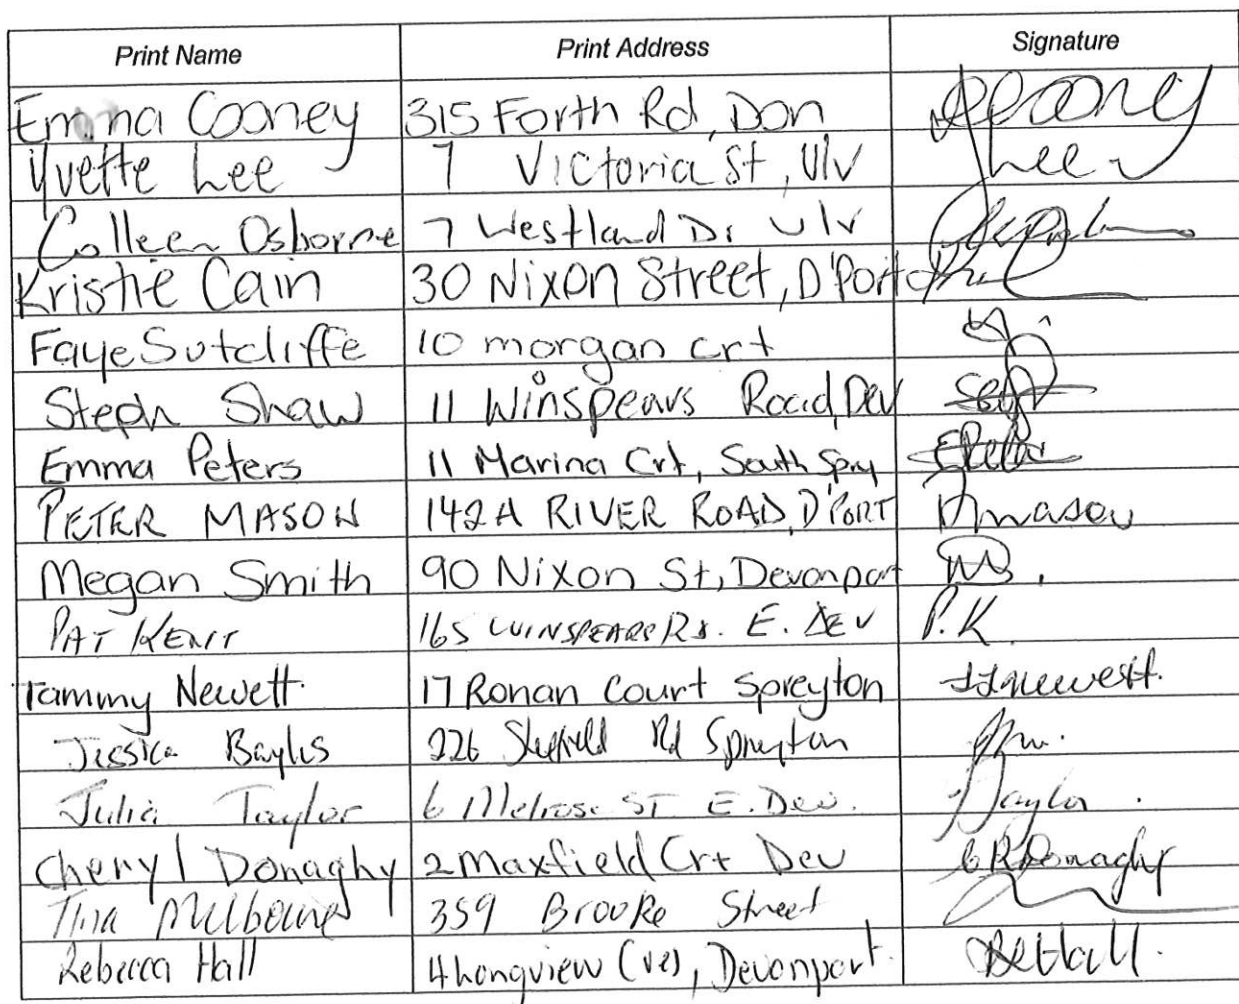 Print Name Print Address Signature
Emma Cooney 315 Forth Rd, Don
Yvette Lee 7 Victoria St, Ulv Lee
Colleen Osborne 7 Westland Dr Ulv
Kristie Cain 30 Nixon Street, D'Port
Faye Sutcliffe 10 morgan crt
Steph Shaw 11 Winspears Road, Dev
Emma Peters 11 Marina Crt, South Spry
PETER MASON 142A RIVER ROAD, D'PORT Pmason
Megan Smith 90 Nixon St, Devonport
PAT KENT 165 WINSPEARS Rd. E. DEV P.K.
Tammy Newett 17 Ronan Court Spreyton
Jessica Baylis 226 Sheffield Rd Spreyton
Julia Taylor 6 Melrose ST E. Dev. JTaylor.
Cheryl Donaghy 2 Maxfield Crt Dev CRDonaghy
Tina Melbourne 359 Brooke Street
Rebecca Hall 4 Longview Cres, Devonport. Hall.